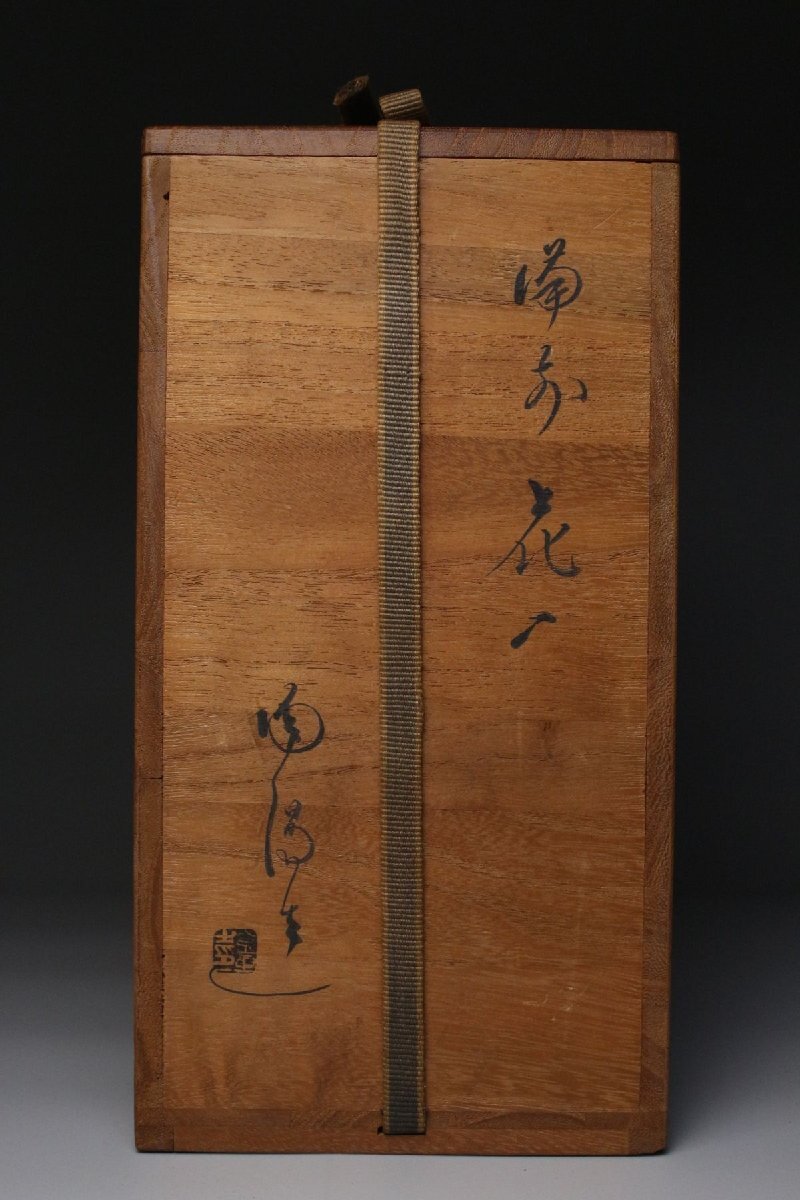 備前 花入
陶陽造